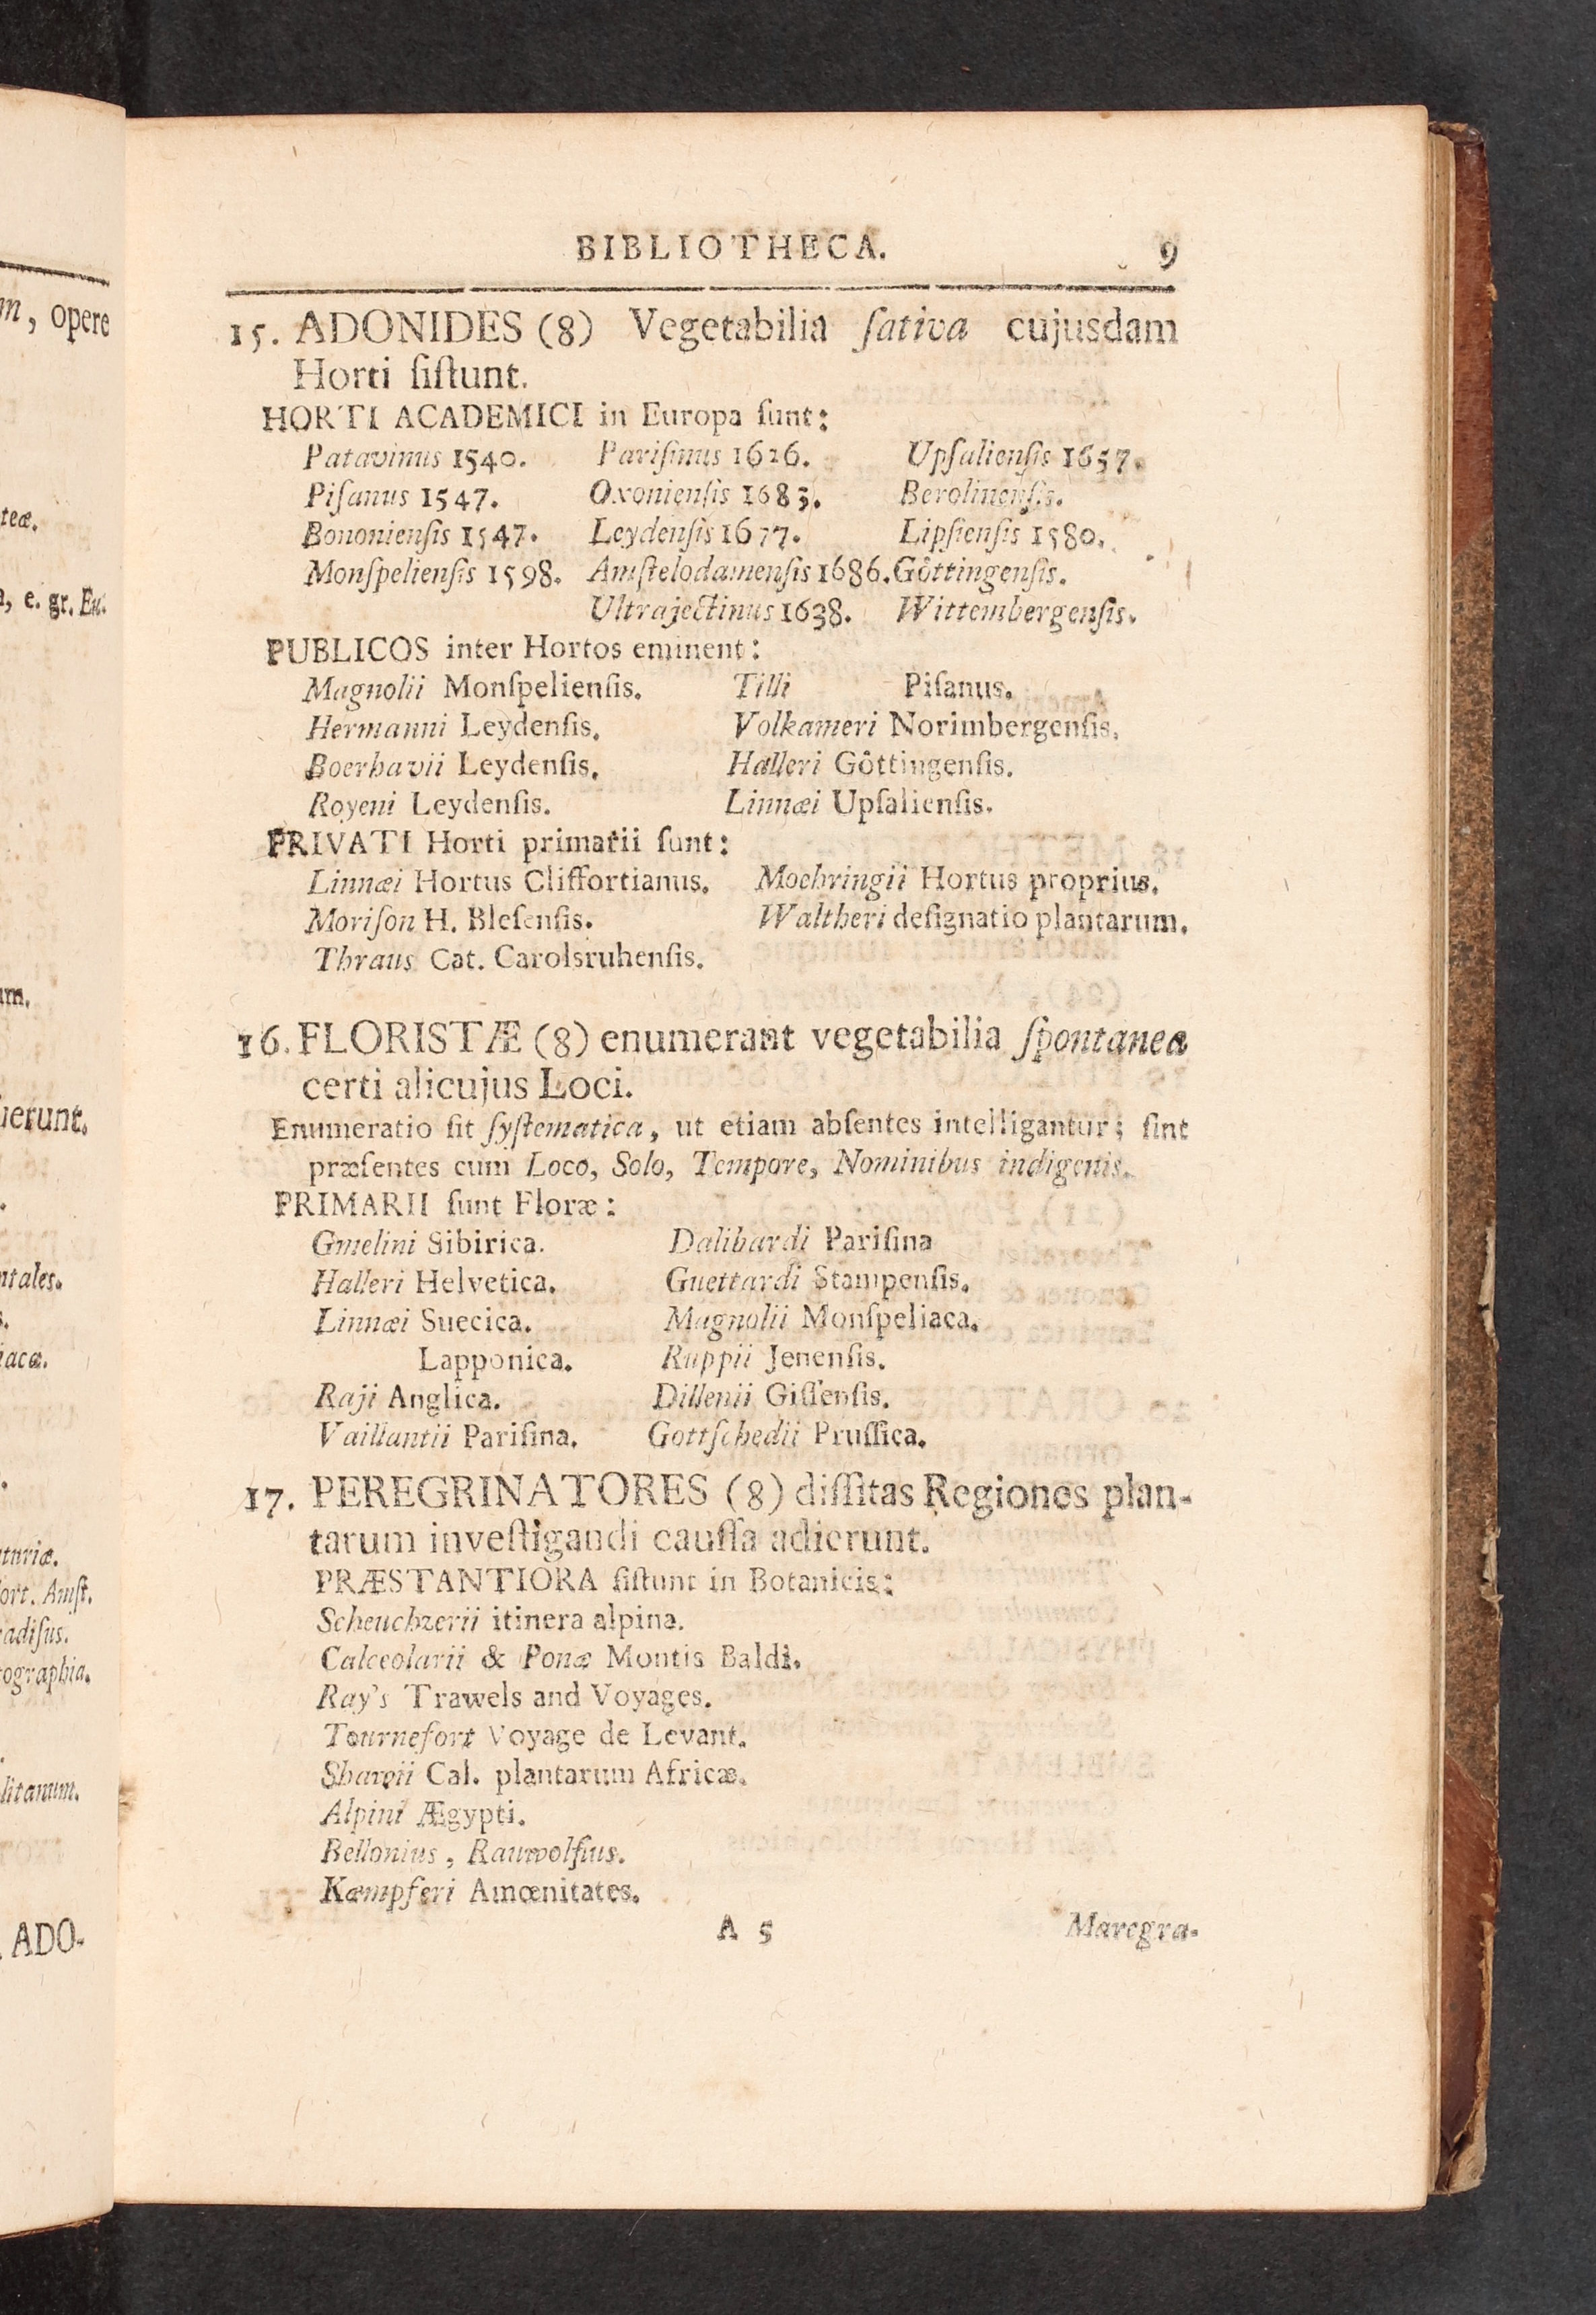 m, opere
teæ.
, e. gr. Eu.
um.
uerunt.
ntales.
iacæ.
ort. Amſt.
radiſus.
tographia.
litanum.
ADO-
BIBLIOTHECA. 9
15. ADONIDES (8) Vegetabilia ſativa cujusdam
Horti ſiſtunt.
HORTI ACADEMICI in Europa ſunt:
Patavinus 1540. Pariſinus 1626. Upſalienſis 1657.
Piſanus 1547. Oxonienſis 1683. Berolinenſis.
Bononienſis 1547. Leydenſis 1677. Lipſienſis 1580.
Monſpelienſis 1598. Amſtelodamenſis 1686. Göttingenſis.
Ultrajectinus 1638. Wittembergenſis.
PUBLICOS inter Hortos eminent:
Magnolii Monſpelienſis. Tilli Piſanus.
Hermanni Leydenſis. Volkameri Norimbergenſis.
Boerhavii Leydenſis. Halleri Göttingenſis.
Royeni Leydenſis. Linnæi Upſalienſis.
PRIVATI Horti primarii ſunt:
Linnæi Hortus Cliffortianus. Moehringii Hortus proprius.
Moriſon H. Bleſenſis. Waltheri deſignatio plantarum.
Thraus Cat. Carolsruhenſis.
16. FLORISTÆ (8) enumerant vegetabilia ſpontanea
certi alicujus Loci.
Enumeratio ſit ſyſtematica, ut etiam abſentes intelligantur; ſint
præſentes cum Loco, Solo, Tempore, Nominibus indigenis.
PRIMARII ſunt Floræ:
Gmelini Sibirica. Dalibardi Pariſina
Halleri Helvetica. Guettardi Stampenſis.
Linnæi Suecica. Magnolii Monſpeliaca.
Lapponica. Ruppii Jenenſis.
Raji Anglica. Dillenii Giſſenſis.
Vaillantii Pariſina. Gottſchedii Pruſſica.
17. PEREGRINATORES (8) diſſitas Regiones plan-
tarum inveſtigandi cauſſa adierunt.
PRÆSTANTIORA ſiſtunt in Botanicis:
Scheuchzerii itinera alpina.
Calceolarii & Ponæ Montis Baldi.
Ray's Trawels and Voyages.
Tournefort Voyage de Levant.
Shawii Cal. plantarum Africæ.
Alpini Ægypti.
Bellonius, Rauwolfius.
Kæmpferi Amœnitates.
A 5 Marcgra-